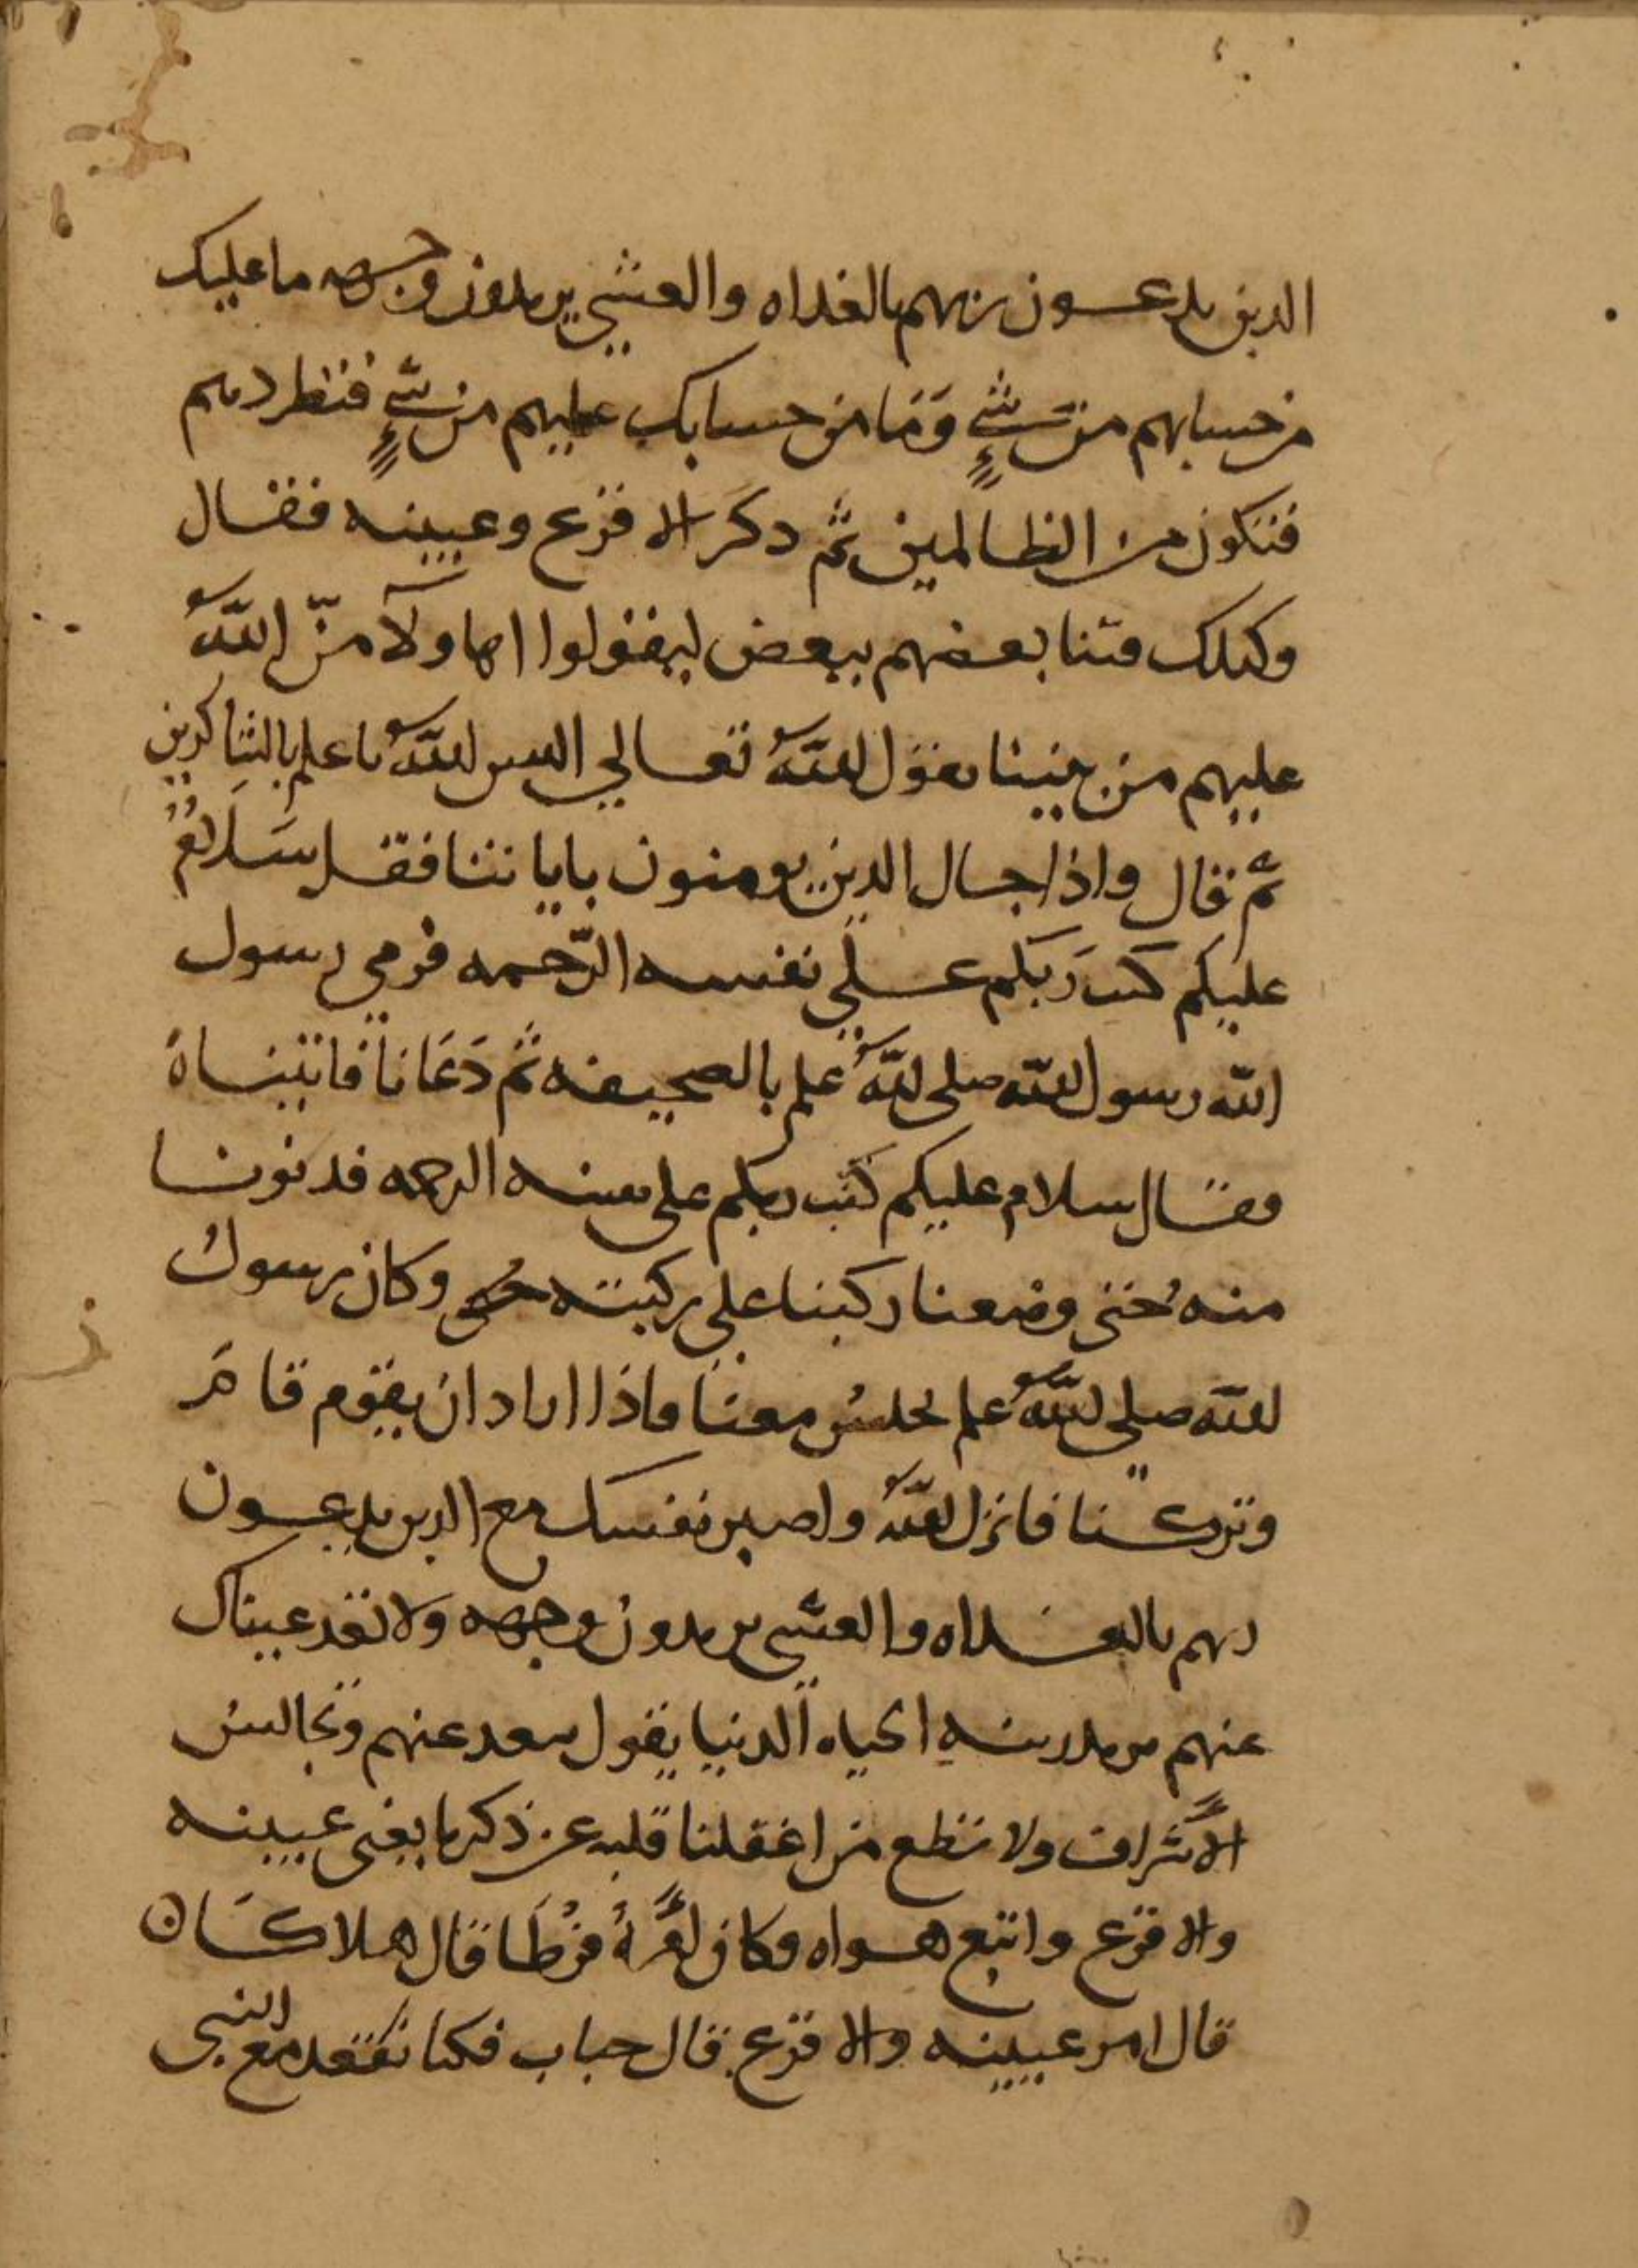 الذين يدعون ربهم بالغداه والعشي يريدون وجهه ما عليك
من حسابهم من شيءٍ وَمَا من حسابك عليهم من شيءٍ فتطردهم
فتكون من الظالمين ثم دكر الاقرع وعيينه فقال
وكذلك فتنا بعضهم ببعض ليقولوا اهاولآ منّ اللّهُ
عليهم من بيننا يقول اللّهُ تعالي اليس اللّهُ باعلم بالشاكرين
ثم قال واذا جاك الذين يومنون باياتنا فقل سَلَامٌ
عليكم كتب رَبكم علي نفسه الرّحمه فرمي رسول
اللّه رسول اللّه صلى اللّهُ علم بالصحيفه ثم دَعَانا فاتيناهُ
فقال سلام عليكم كتب ربكم على نفسه الرحمه فدنونا
منه حتى وضعنا ركبنا علي ركبته وكان رسولُ
اللّه صلي اللّهُ علم يجلسُ معنا فاذا اراد ان يقوم قامَ
وتركنا فانزل اللّهُ واصبر نفسك مع الذين يدعون
ربهم بالغداه والعشي يريدون وجهه ولا تعد عيناك
عنهم تريد زينه الحياه الدنيا يقول تعد عنهم وتجالسُ
الاشراف ولا تطع من اغفلنا قلبه عن ذكرنا يعنى عيينه
والاقرع واتبع هواه وكان امرهُ فرُطَا قال هلاكا
قال امر عيينه والاقرع قال خباب فكنا نقعد مع النبي